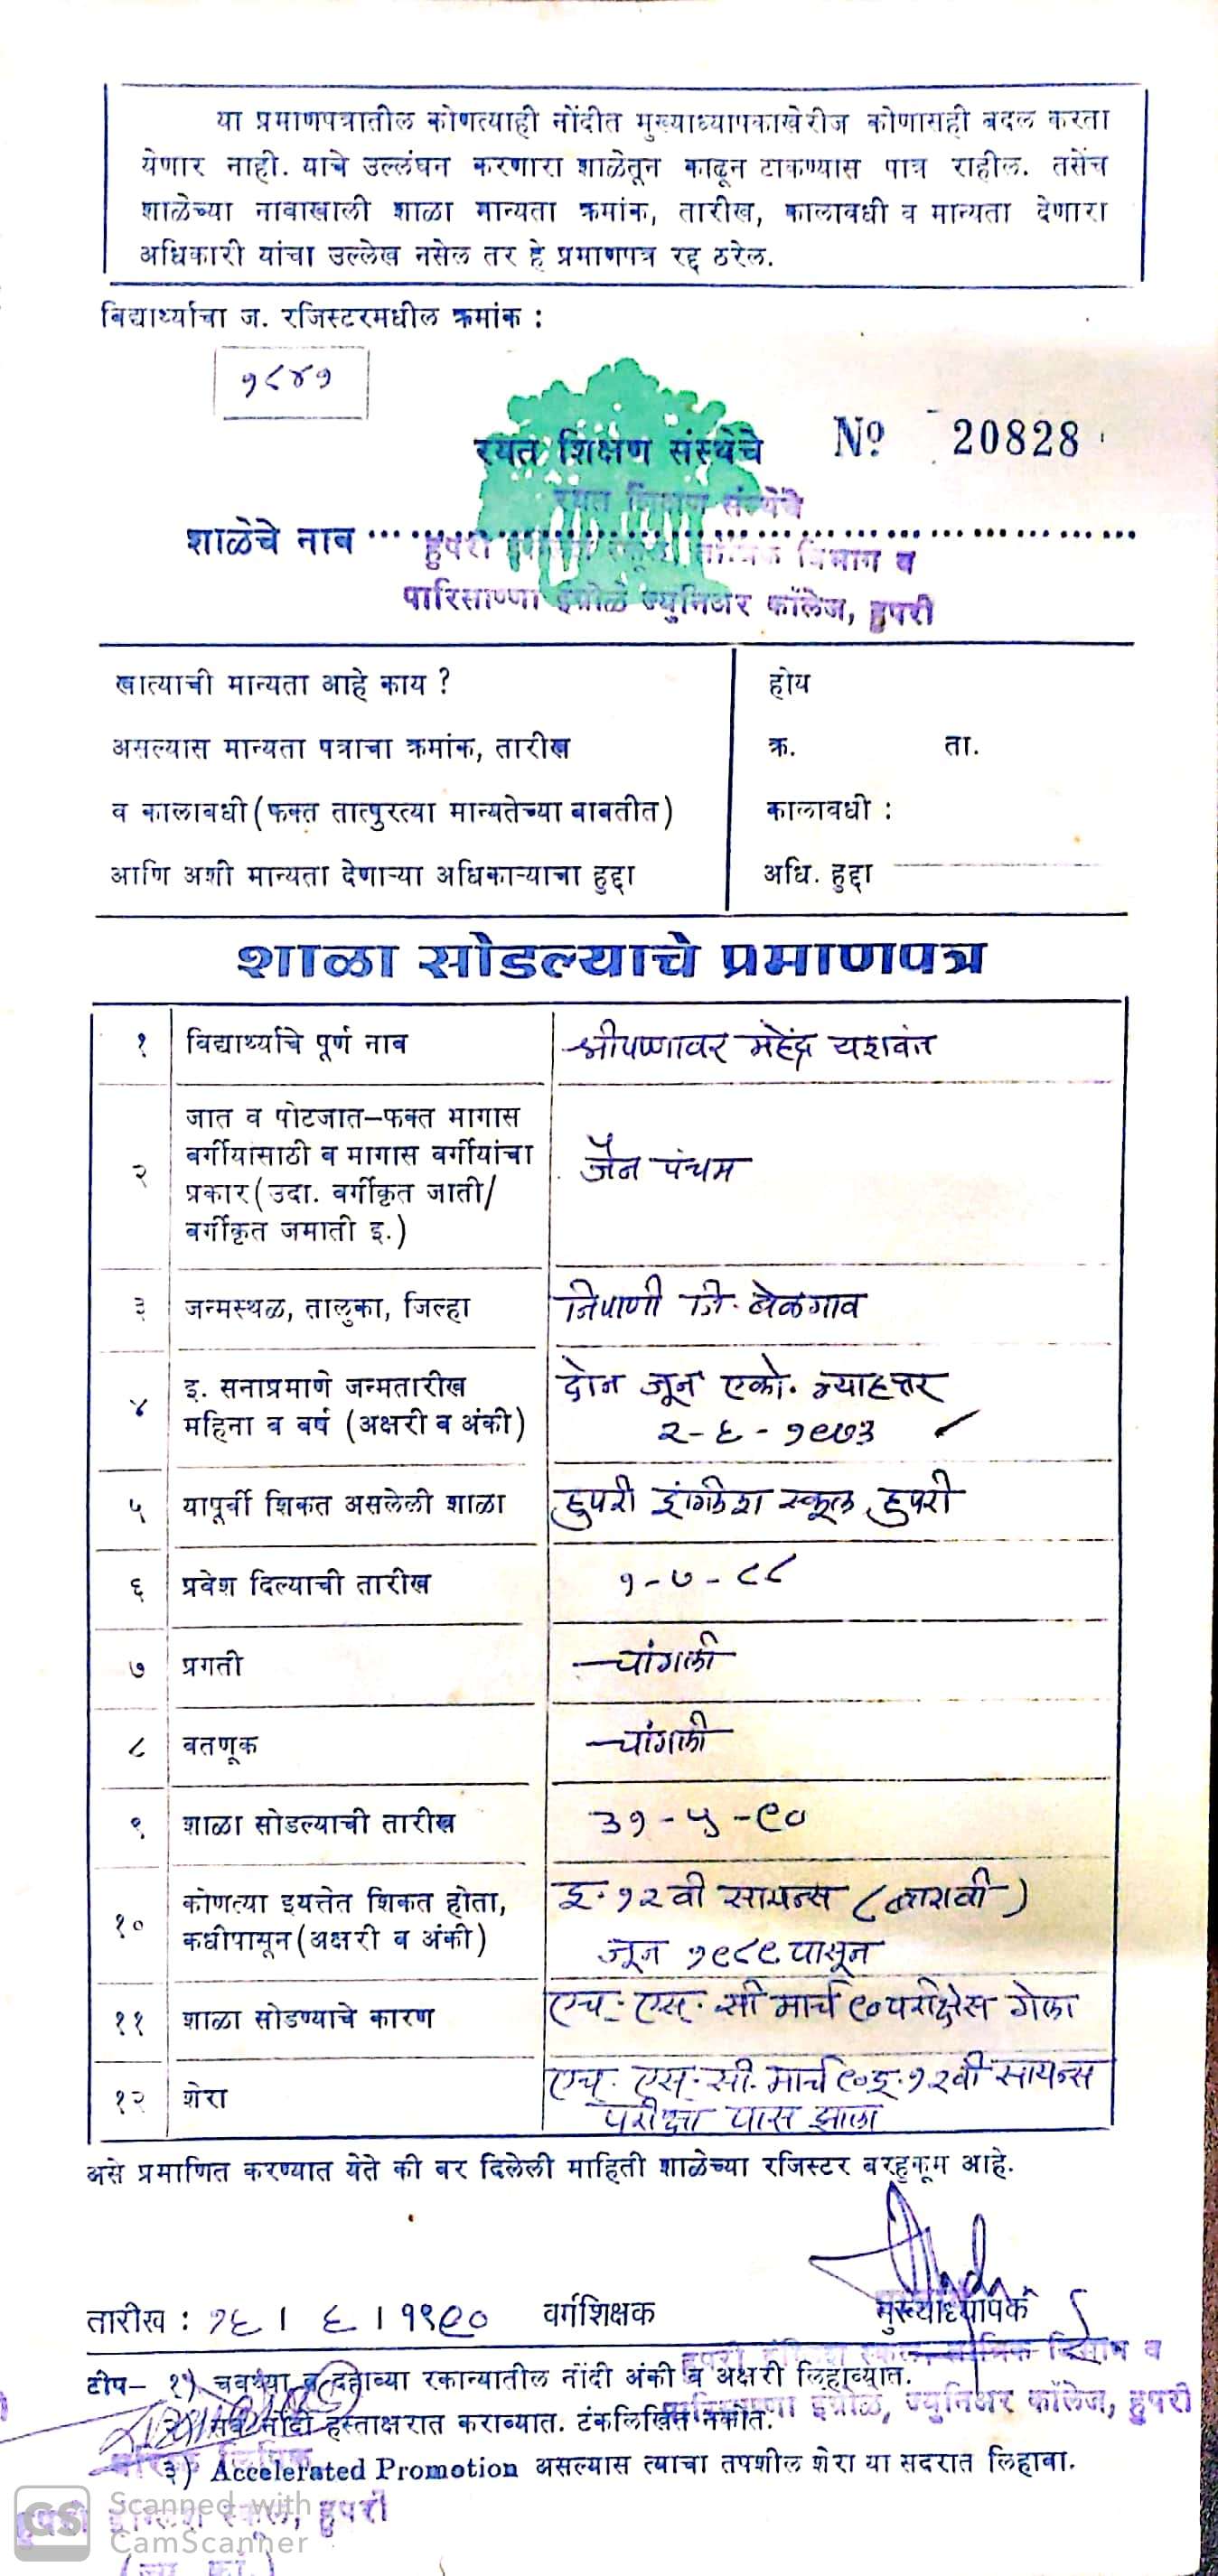 या प्रमाणपत्रातील कोणत्याही नोंदीत मुख्याध्यापकाखेरीज कोणासही बदल करता
येणार नाही. याचे उल्लंघन करणारा शाळेतून काढून टाकण्यास पात्र राहील. तसेंच
शाळेच्या नावाखाली शाळा मान्यता क्रमांक, तारीख, कालावधी व मान्यता देणारा
अधिकारी यांचा उल्लेख नसेल तर हे प्रमाणपत्र रद्द ठरेल.
विद्यार्थ्याचा ज. रजिस्टरमधील क्रमांक :
१८४१
रयत शिक्षण संस्थेचे Nº 20828
रयत शिक्षण संस्थेचे
शाळेचे नाव
हुपरी विभाग व
पारिसाण्णा इंग्रोळे ज्युनिअर कॉलेज, हुपरी
खात्याची मान्यता आहे काय ? होय
असल्यास मान्यता पत्राचा क्रमांक, तारीख क्र. ता.
व कालावधी (फक्त तात्पुरत्या मान्यतेच्या बाबतीत) कालावधी :
आणि अशी मान्यता देणाऱ्या अधिकाऱ्याचा हुद्दा अधि. हुद्दा
शाळा सोडल्याचे प्रमाणपत्र
१ विद्यार्थ्याचे पूर्ण नाव श्रीपण्णावर महेंद्र यशवंत
२ जात व पोटजात–फक्त मागास
वर्गीयांसाठी व मागास वर्गीयांचा
प्रकार (उदा. वर्गीकृत जाती/
वर्गीकृत जमाती इ.)
जैन पंचम
३ जन्मस्थळ, तालुका, जिल्हा निपाणी जि. बेळगाव
४ इ. सनाप्रमाणे जन्मतारीख
महिना व वर्ष (अक्षरी व अंकी)
दोन जून एको. त्र्याहत्तर
२-६-१९७३
५ यापूर्वी शिकत असलेली शाळा हुपरी इंग्लिश स्कूल, हुपरी
६ प्रवेश दिल्याची तारीख १-७-८८
७ प्रगती चांगली
८ वतणूक चांगली
९ शाळा सोडल्याची तारीख ३१-५-९०
१० कोणत्या इयत्तेत शिकत होता,
कधीपासून (अक्षरी व अंकी)
इ. १२ वी सायन्स (बारावी)
जून १९८९ पासून
११ शाळा सोडण्याचे कारण एच. एस. सी मार्च ९० परीक्षेस गेला
१२ शेरा एच. एस. सी. मार्च ९० इ. १२वी सायन्स
परीक्षा पास झाला
असे प्रमाणित करण्यात येते की वर दिलेली माहिती शाळेच्या रजिस्टर बरहुकूम आहे.
तारीख : १६ । ६ । १९९० वर्गशिक्षक मुख्याध्यापक
हुपरी इंग्लिश स्कूल तांत्रिक विभाग व
पारिसाण्णा इंग्रोळे, ज्युनिअर कॉलेज, हुपरी
टीप– १) चवथ्या व दहाव्या रकान्यातील नोंदी अंकी व अक्षरी लिहाव्यात.
२) सर्व नोंदी हस्ताक्षरात कराव्यात. टंकलिखित नकोत.
३) Accelerated Promotion असल्यास त्याचा तपशील शेरा या सदरात लिहावा.
हुपरी इंग्लिश स्कूल, हुपरी
CS Scanned with
CamScanner